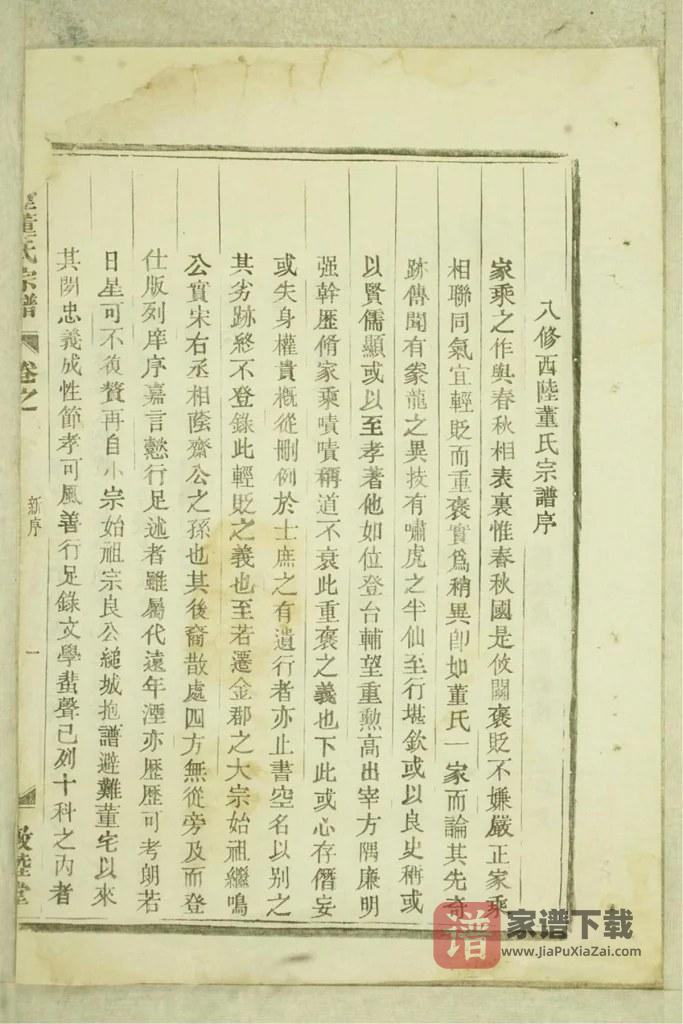 八修西陸董氏宗譜序
家乘之作與春秋相表裏惟春秋國是攸關褒貶不嫌嚴正家乘
相聯同氣宜輕貶而重褒實爲稍異卽如董氏一家而論其先奇
跡傳聞有豢龍之異技有嘯虎之半仙至行堪欽或以良史稱或
以賢儒顯或以至孝著他如位登台輔望重勲高出宰方隅廉明
强幹歷脩家乘嘖嘖稱道不衰此重褒之義也下此或心存僭妄
或失身權貴概從刪例於士庶之有遺行者亦止書空名以别之
其劣跡終不登錄此輕貶之義也至若遷金郡之大宗始祖繼鳴
公實宋右丞相蔭齋公之孫也其後裔散處四方無從旁及而登
仕版列庠序嘉言懿行足述者雖屬代遠年湮亦歷歷可考朗若
日星可不復贅再自小宗始祖宗良公縋城抱譜避難董宅以來
其間忠義成性節孝可風善行足錄文學蜚聲已列十科之內者
董氏宗譜
卷之
新序
一
敦睦堂
譜
家谱下载
www.JiaPuXiaZai.com